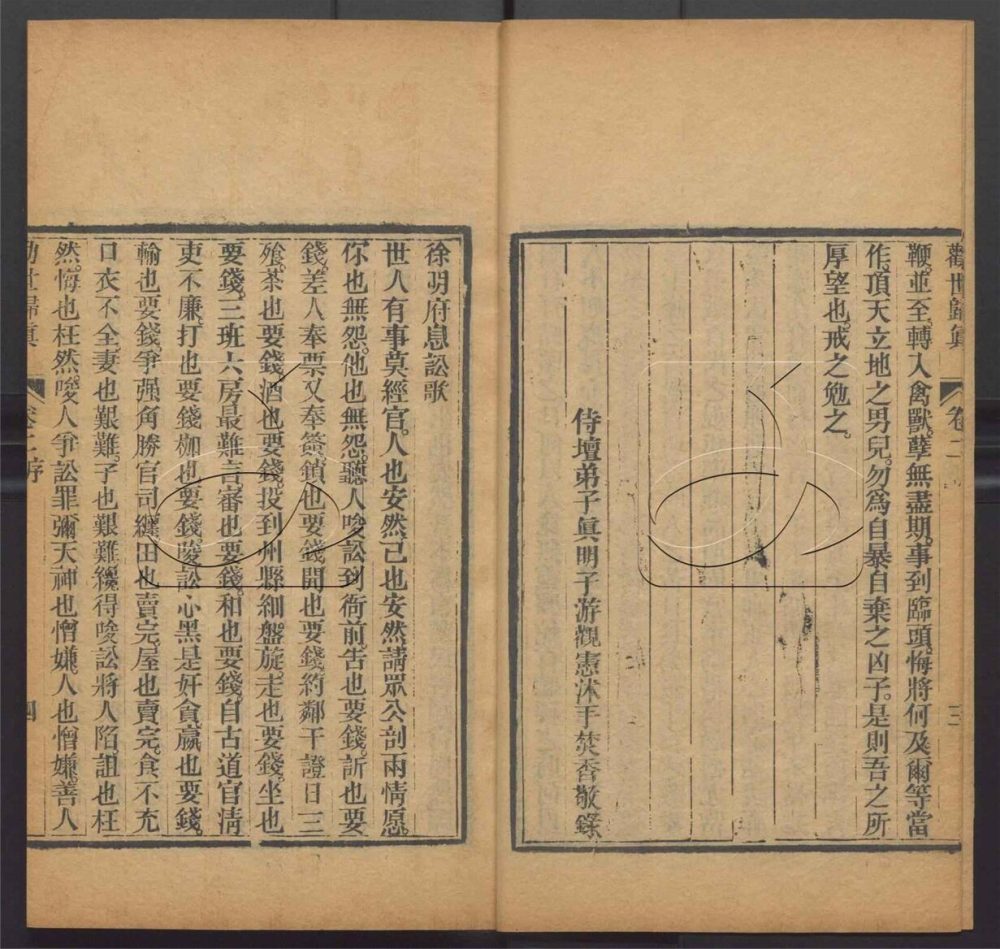 勸世歸眞 卷二 三
鞭。並至。轉入禽獸。孽無盡期。事到臨頭。悔將何及。爾等當
作頂天立地之男兒。勿爲自暴自棄之凶子。是則吾之所
厚望也。戒之勉之。
侍壇弟子眞明子游觀憲沐手焚香敬錄
徐明府息訟歌
世人有事莫經官。人也安然己也安然。請眾公剖兩情愿。
你也無怨。他也無怨。聽人唆訟到衙前。告也要錢。訴也要
錢。差人奉票又奉簽。鎖也要錢。開也要錢。約鄰干證日三
飱。茶也要錢。酒也要錢。投到州縣細盤旋。走也要錢。坐也
要錢。三班六房最難言。審也要錢。和也要錢。自古道官淸
吏不廉。打也要錢。枷也要錢。唆訟心黑是奸貪。贏也要錢。
輸也要錢。爭强角勝官司纏。田也賣完。屋也賣完。食不充
口衣不全。妻也艱難。子也艱難。纔得唆訟將人陷。詛也枉
然。悔也枉然。唆人爭訟罪彌天。神也憎嫌。人也憎嫌。善人
勸世歸眞 卷二序 四